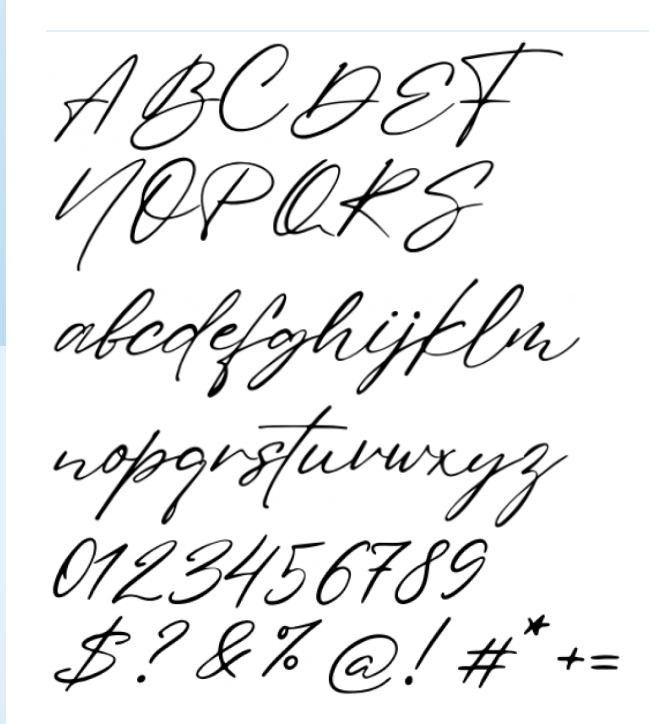 ABCDEF
NOPQRS
abcdefghijklm
nopqrstuvwxyz
0123456789
$?&%@!#*+=